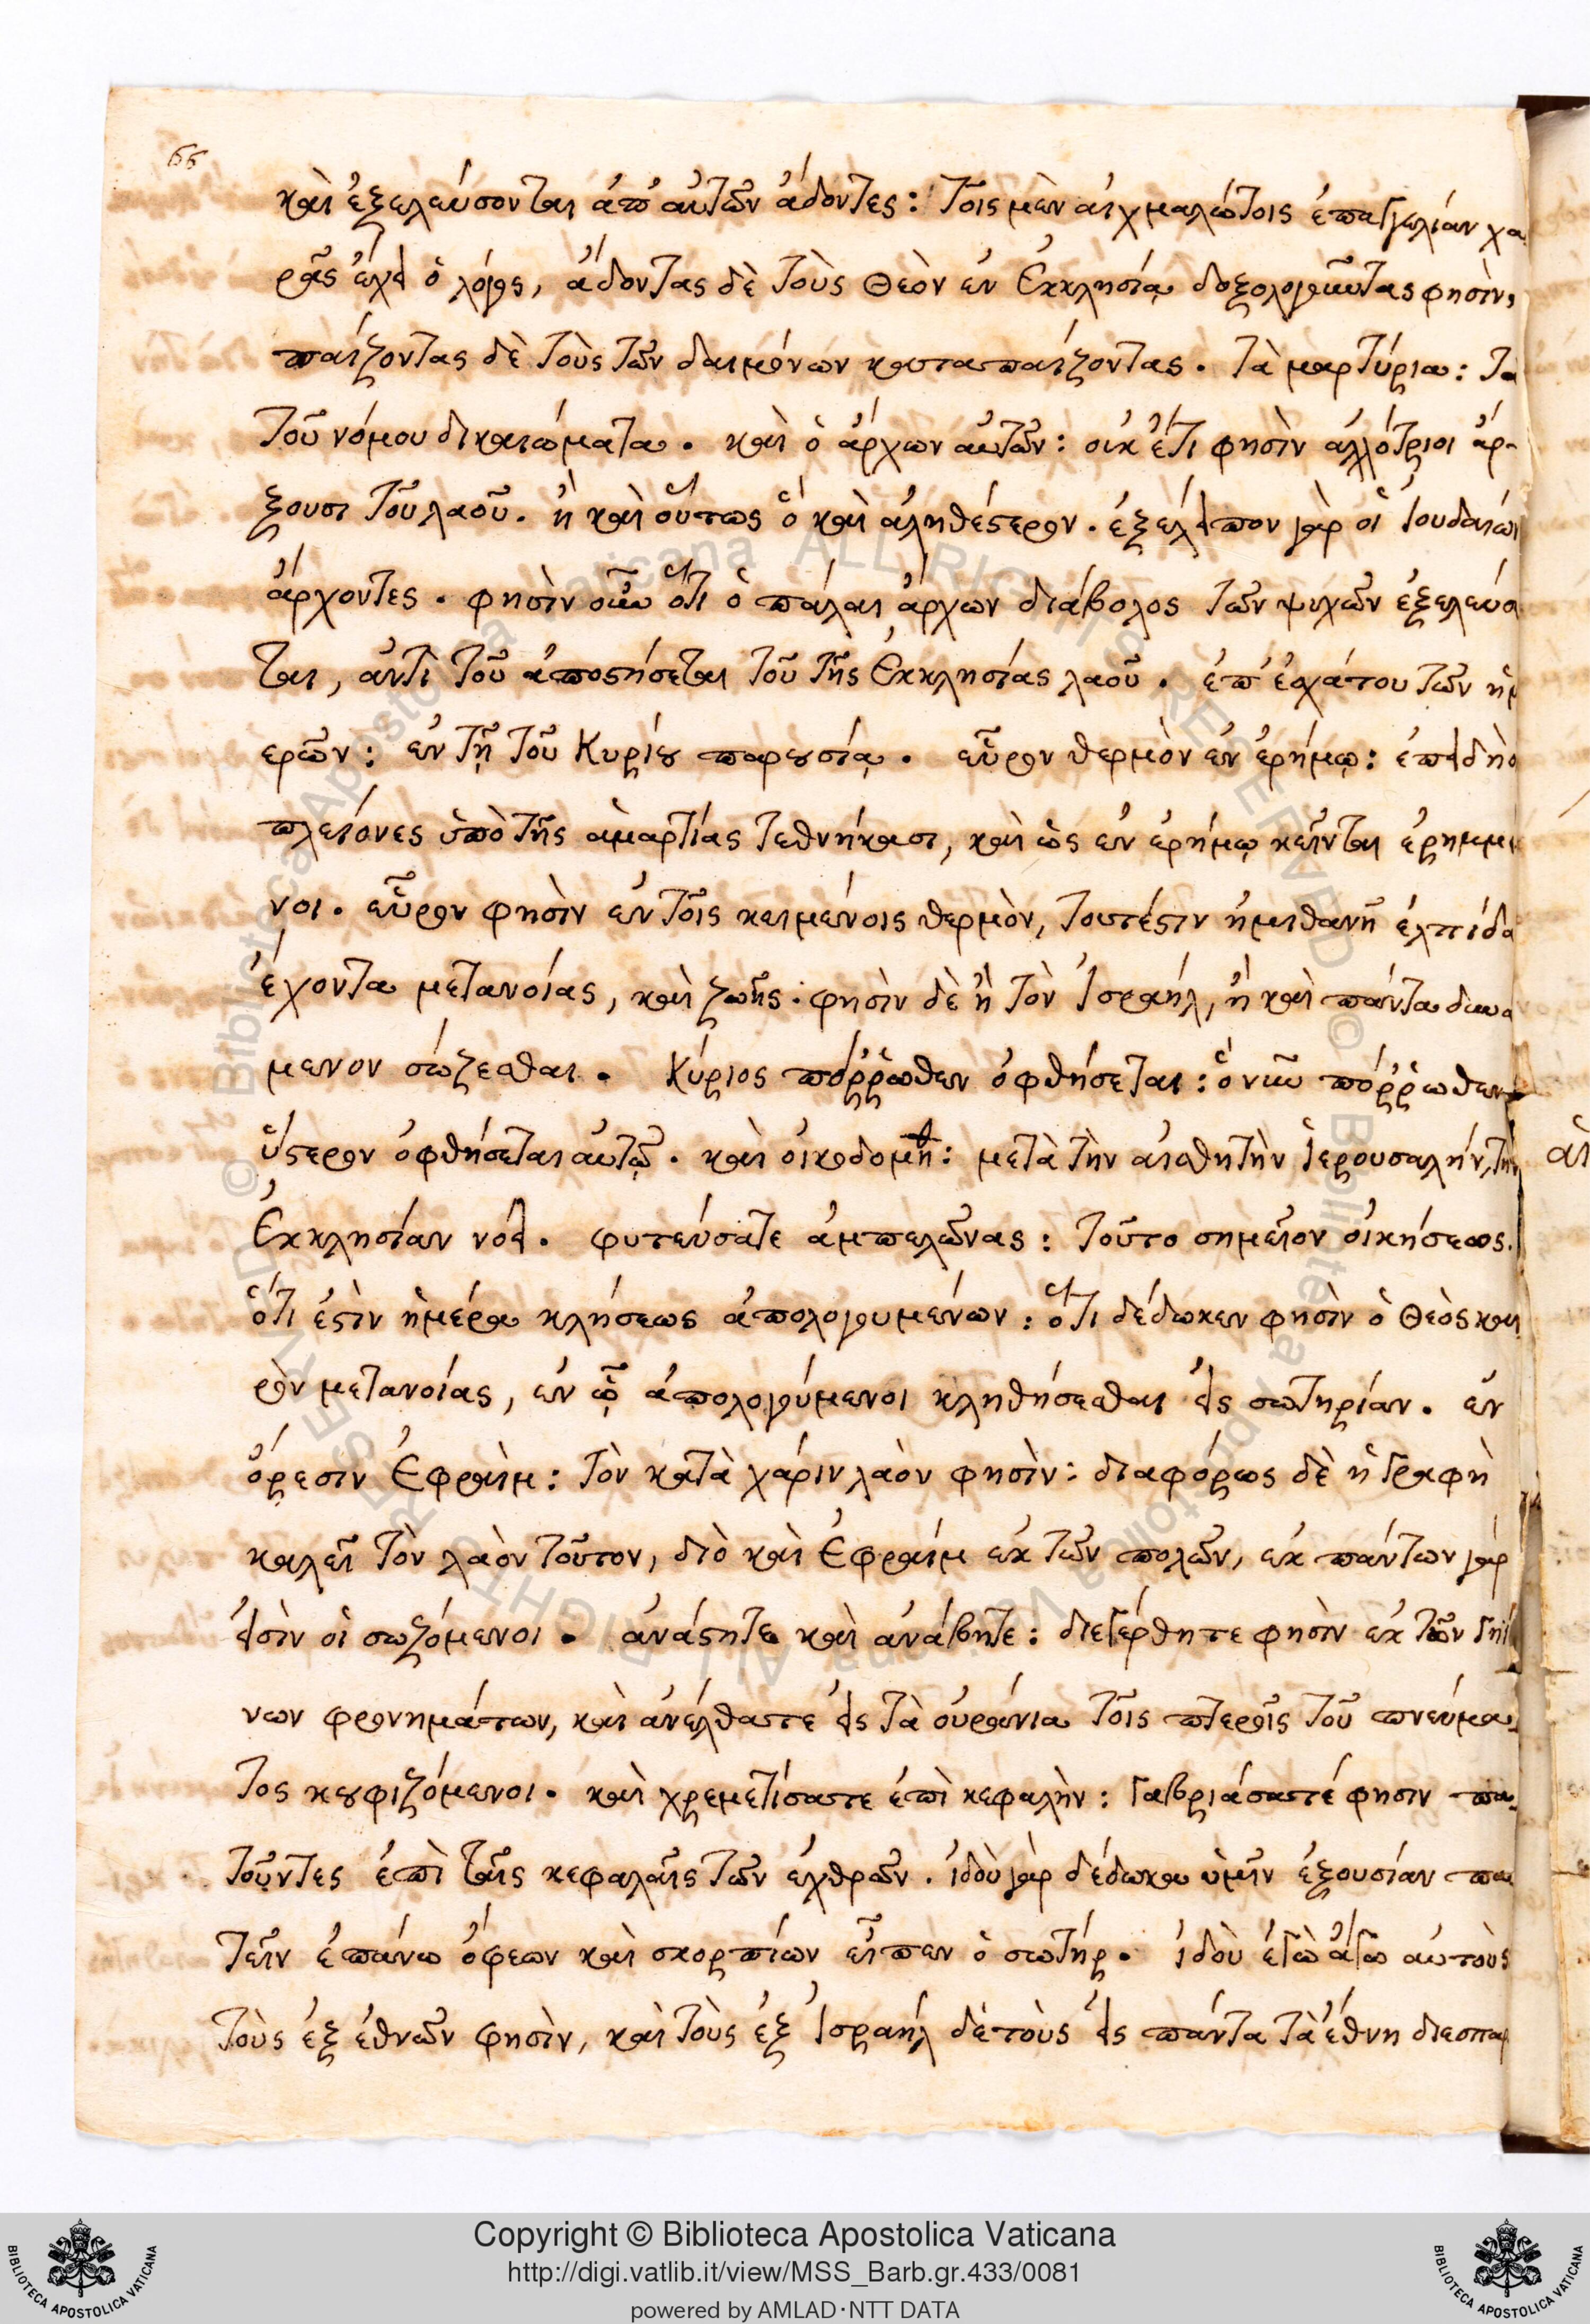 66
καὶ ἐξελεύσονται ἀπ' αὐτῶν ἄδοντες: Τοῖς μὲν αἰχμαλώτοις ἐπαγγελίαν χα
ρᾶς ἔχει ὁ λόγος, ἄδοντας δὲ τοὺς Θεὸν ἐν Ἐκκλησίᾳ δοξολογοῦντας φησὶν,
παίζοντας δὲ τοὺς τῶν δαιμόνων καταπαίζοντας. τὰ μαρτύρια: τὰ
τοῦ νόμου δικαιώματα. καὶ ὁ ἄρχων αὐτῶν: οὐκ ἔτι φησὶν ἀλλότριοι ἄρ-
ξουσι τοῦ λαοῦ. ἢ καὶ οὕτως ὃ καὶ ἀληθέστερον. ἐξέλειπον γὰρ οἱ Ἰουδαίων
ἄρχοντες. φησὶν οὖν ὅτι ὁ πάλαι ἄρχων διάβολος τῶν ψυχῶν ἐξελεύσ
ται, ἀντὶ τοῦ ἀποστήσεται τοῦ τῆς Ἐκκλησίας λαοῦ. ἐπ' ἐσχάτου τῶν ἡμ
ερῶν: ἐν τῇ τοῦ Κυρίου παρουσίᾳ. εὗρον θερμὸν ἐν ἐρήμῳ: ἐπειδὴ ο
πλείονες ὑπὸ τῆς ἁμαρτίας τεθνήκασι, καὶ ὡς ἐν ἐρήμῳ κεῖνται ἐρημμέ
νοι. εὗρον φησὶν ἐν τοῖς κειμένοις θερμὸν, τουτέστιν ἡμιθανῆ ἐλπίδα
ἔχοντα μετανοίας, καὶ ζωῆς. φησὶν δὲ ἢ τὸν Ἰσραήλ, ἢ καὶ πάντα δυνά
μενον σώζεσθαι. Κύριος πόρρωθεν ὀφθήσεται: ὃ νῦν πόρρωθεν
ὕστερον ὀφθήσεται αὐτῷ. καὶ οἰκοδομηθ: μετὰ τὴν αἰσθητὴν Ἱερουσαλὴν, τὴν
Ἐκκλησίαν νόει. φυτεύσατε ἀμπελῶνας: τοῦτο σημεῖον οἰκήσεως.
ὅτι ἐστὶν ἡμέρα κλήσεως ἀπολογουμένων: ὅτι δέδωκεν φησὶν ὁ Θεὸς και
ρὸν μετανοίας, ἐν ᾧ ἀπολογούμενοι κληθήσεσθαι εἰς σωτηρίαν. ἐν
ὄρεσιν Ἐφραὶμ: τὸν κατὰ χάριν λαὸν φησὶν: διαφόρως δὲ ἡ Γραφὴ
καλεῖ τὸν λαὸν τοῦτον, διὸ καὶ Ἐφραὶμ ἐκ τῶν πολῶν, ἐκ πάντων γάρ
εἰσὶν οἱ σωζόμενοι. ἀνάστητε καὶ ἀνάβητε: διεγέρθητε φησὶν ἐκ τῶν γηί
νων φρονημάτων, καὶ ἀνέλθατε εἰς τὰ οὐράνια τοῖς πτεροῖς τοῦ πνεύμα
τος κουφιζόμενοι. καὶ χρεμετίσατε ἐπὶ κεφαλὴν: γαβριάσατέ φησιν πα
τοῦντες ἐπὶ ταῖς κεφαλαῖς τῶν ἐχθρῶν. ἰδοὺ γὰρ δέδωκα ὑμῖν ἐξουσίαν πα
τεῖν ἐπάνω ὄφεων καὶ σκορπίων εἶπεν ὁ σωτήρ. ἰδοὺ ἐγὼ ἄγω αὐτοὺς
τοὺς ἐξ ἐθνῶν φησὶν, καὶ τοὺς ἐξ Ἰσραήλ δὲ τοὺς εἰς πάντα τὰ ἔθνη διεσπαρ
Copyright © Biblioteca Apostolica Vaticana
http://digi.vatlib.it/view/MSS_Barb.gr.433/0081
powered by AMLAD·NTT DATA